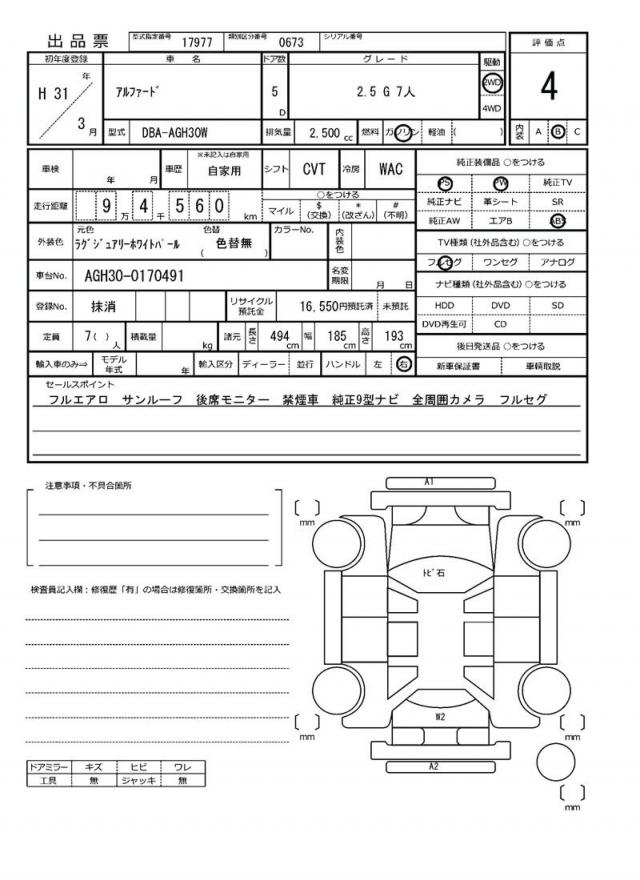 出品票 型式指定番号 17977 類別区分番号 0673 シリアル番号
評価点
4
内装 A B C
初年度登録 車名 ドア数 グレード 駆動
H 31 年 3 月 アルファード 5 D 2.5 G 7人 2WD 4WD
型式 DBA-AGH30W 排気量 2,500 cc 燃料 ガソリン 軽油 ( )
車検 年 月 車歴 ※未記入は自家用 自家用 シフト CVT 冷房 WAC
走行距離 9 万 4 千 5 6 0 km
○をつける
マイル $ (交換) * (改ざん) # (不明)
外装色 元色 ラグジュアリーホワイトパール 色替 ( 色替無 ) カラーNo. 内装色
車台No. AGH30-0170491 名変期限 月 日
登録No. 抹消 リサイクル預託金 16,550円預託済 未預託
定員 7( )人 積載量 kg 諸元 長さ 494 cm 幅 185 cm 高さ 193 cm
輸入車のみ⇒ モデル年式 年 輸入区分 ディーラー 並行 ハンドル 左 右
純正装備品 ○をつける
PS PW 純正TV
純正ナビ 革シート SR
純正AW エアB ABS
TV種類(社外品含む) ○をつける
フルセグ ワンセグ アナログ
ナビ種類(社外品含む) ○をつける
HDD DVD SD
DVD再生可 CD
後日発送品 ○をつける
新車保証書 車輌取説
セールスポイント
フルエアロ サンルーフ 後席モニター 禁煙車 純正9型ナビ 全周囲カメラ フルセグ
注意事項・不具合箇所
検査員記入欄:修復歴「有」の場合は修復箇所・交換箇所を記入
ドアミラー キズ ヒビ ワレ
工具 無 ジャッキ 無
A1
mm
mm
トビ石
W2
mm
mm
A2
mm